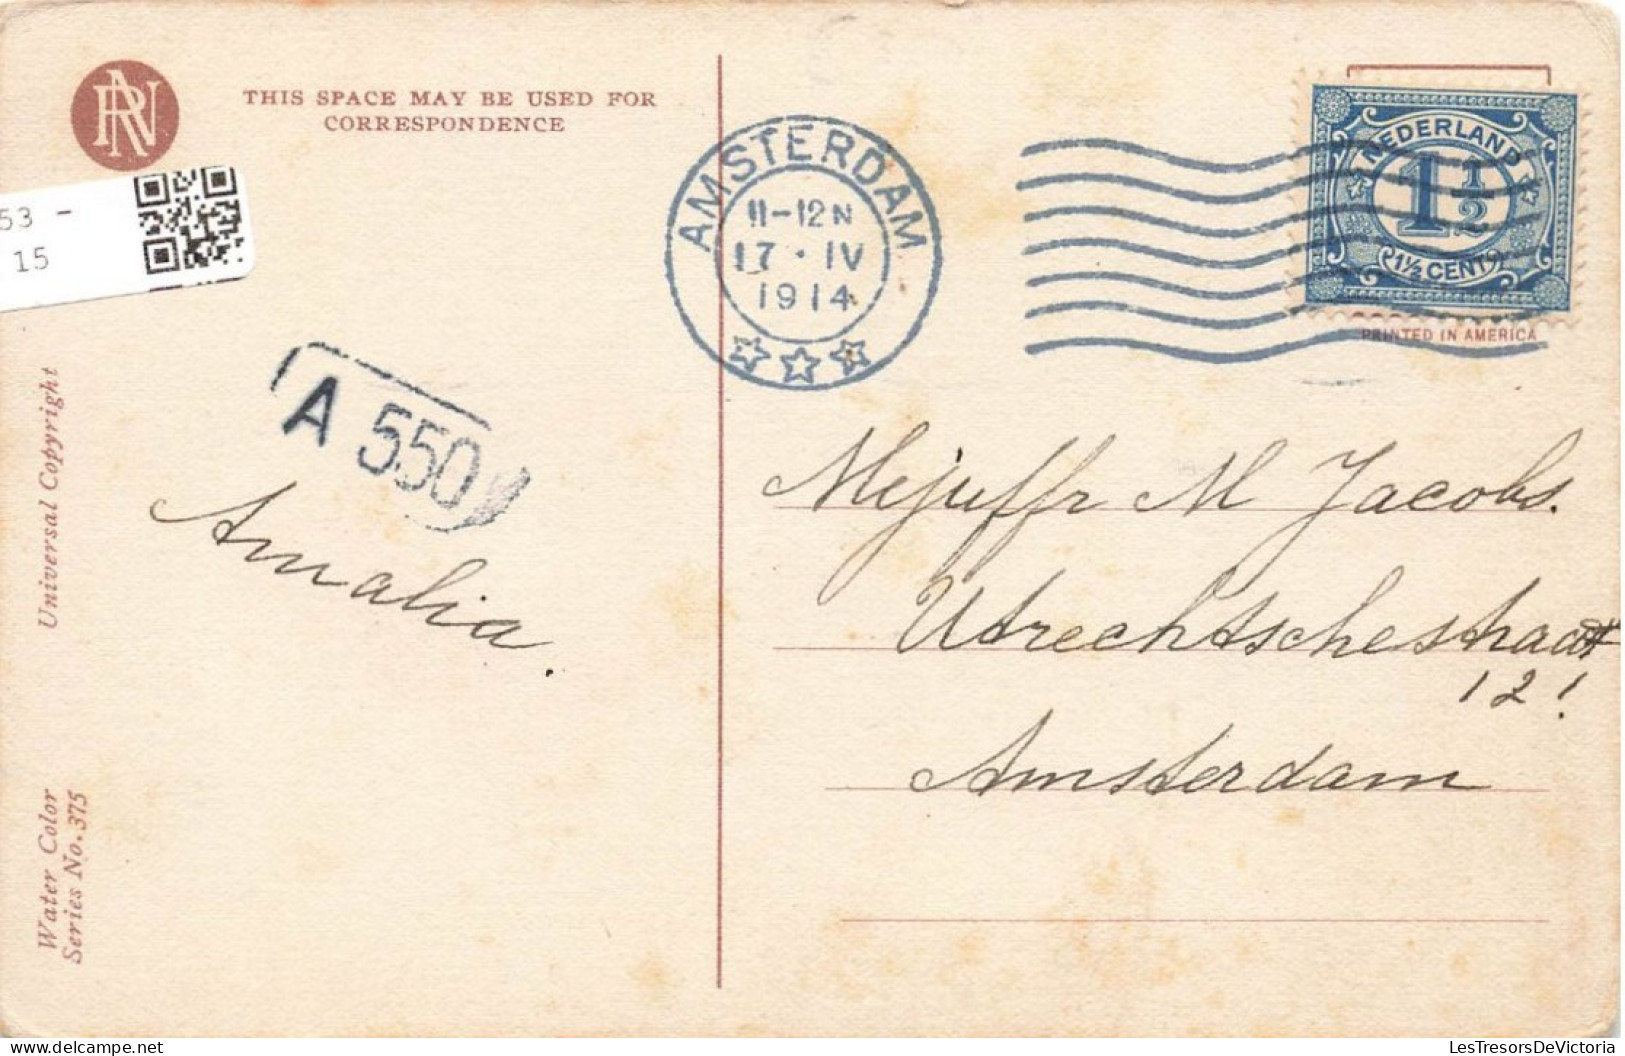 RN
THIS SPACE MAY BE USED FOR
CORRESPONDENCE
53 -
15
AMSTERDAM
11-12 N
17 · IV
1914
NEDERLAND
1 1/2
1½ CENT
PRINTED IN AMERICA
A 550
Amalia.
Mejuffr M Jacobs.
Utrechtschestraat
12!
Amsterdam
Universal Copyright
Water Color
Series No. 375
LesTresorsDeVictoria